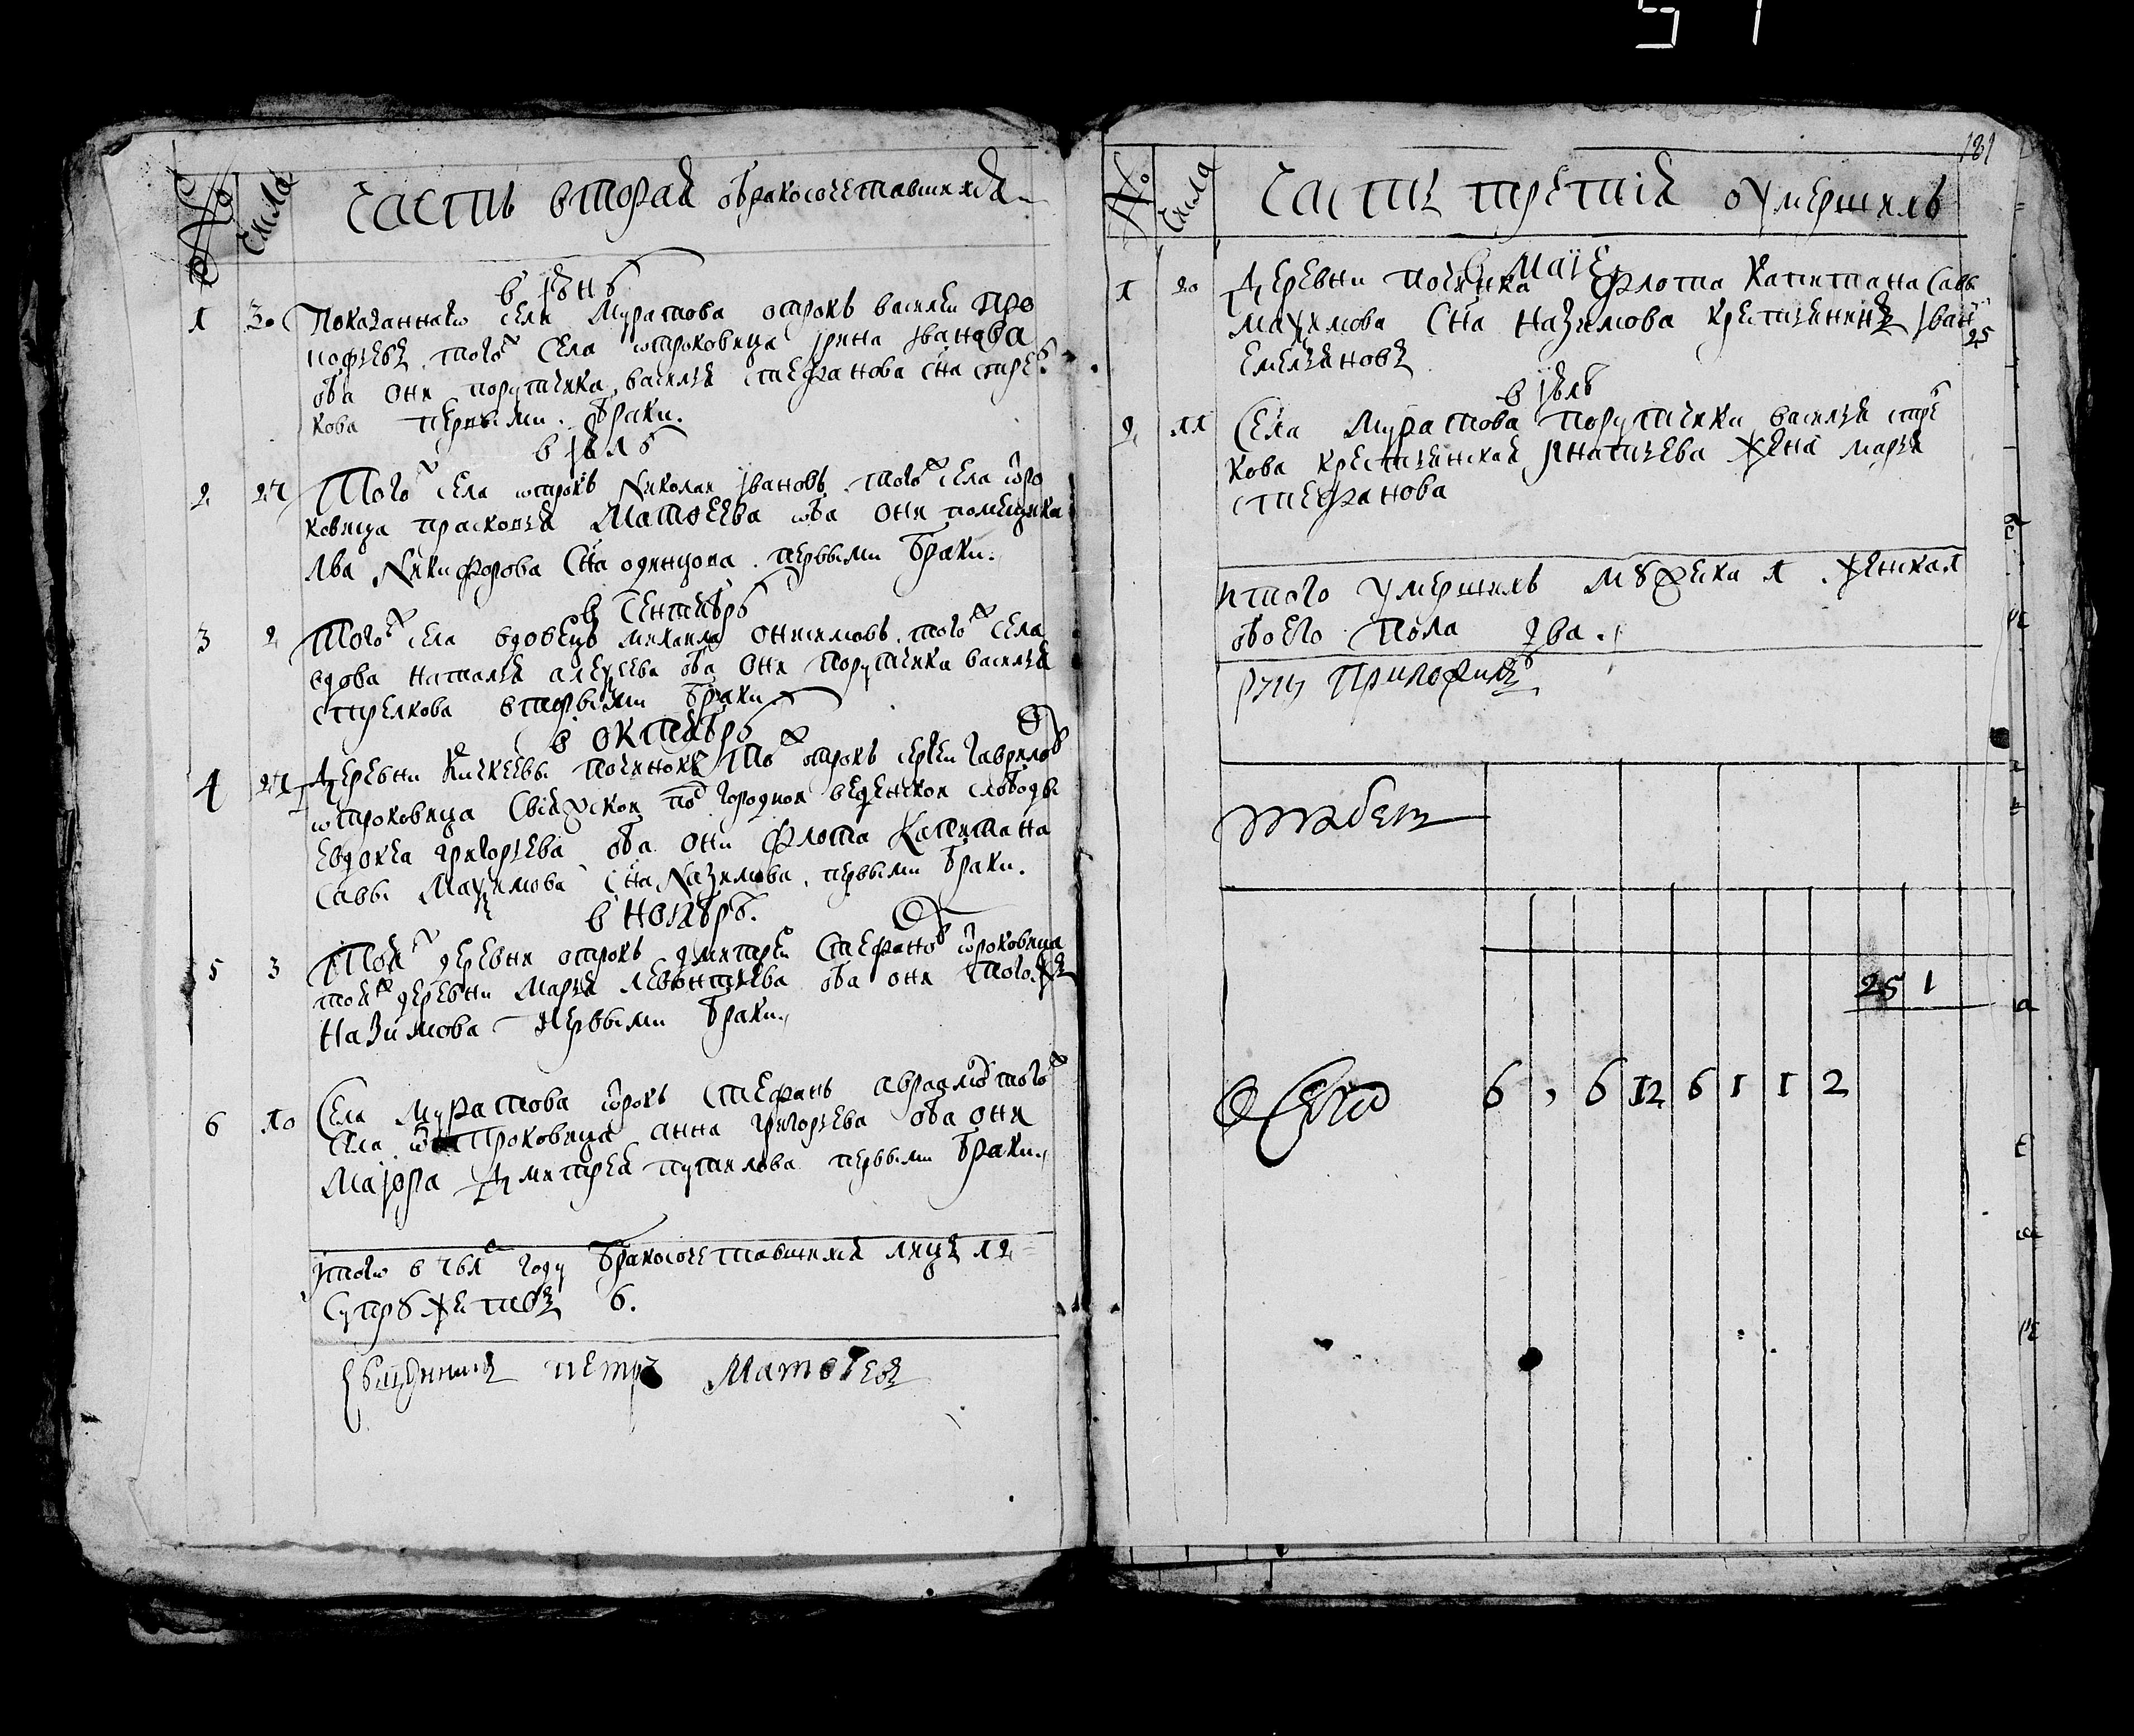 № Числа Часть вторая о бракосочетавшихся
в Iюнѣ
1 30 Показаннаго села Муратова отрокъ василеи про
кофьевъ того ж села отроковица iрина iванова
оба они порутчика василья стефанова сна стрел
кова первыми браки.
в Iюлѣ
2 27 Того ж села отрокъ Николаи iвановъ того ж села отро
ковица прасковья Матѳеева оба они помещика
Лва Никифорова Сна одинцова первыми браки.
в Сентябрѣ
3 2 Того ж села вдовецъ михаила онисимовъ того ж села
вдова наталья алеѯеева оба они порутчика василья
стрелкова вторыми браки
в октябрѣ
4 27 Деревни починокъ то ж отрокъ сергеи гавриловъ
отроковица Свiяжскои под городнои веденскои слободы
Евдокея григорьева оба они флота Капитана
Савы Маѯимова Сна Назимова первыми браки.
в ноябрѣ.
5 3 Тои ж деревни отрокъ дмитреи Стефановъ отроковица
тои ж деревни Марья Левонтьева оба они того ж
Назимова первыми браки.
6 10 Села Муратова отрокъ Стефанъ аврамовъ того ж
села отроковица анна григорьева оба они
Маiора Дмитрея путилова первыми браки.
iтого в году бракосочетавшихся лицъ 12
Супружествъ 6.
Священникъ петръ Матѳеевъ
181
№ Числа Часть третiя о умершихъ
в Маiе
1 20 Деревни починка флота Капитана Савы
Маѯимова Сна Назимова крестьянинъ iванъ
Емельяновъ 25
в Iюлѣ
2 11 Села Муратова порутчика василья стрел
кова крестьянская iгнатьева жена марья
стефанова
итого умершихъ мужска 1 женска 1
обоего пола два.
руку приложилъ
табель
25 1
Всего 6 , 6 12 6 1 1 2